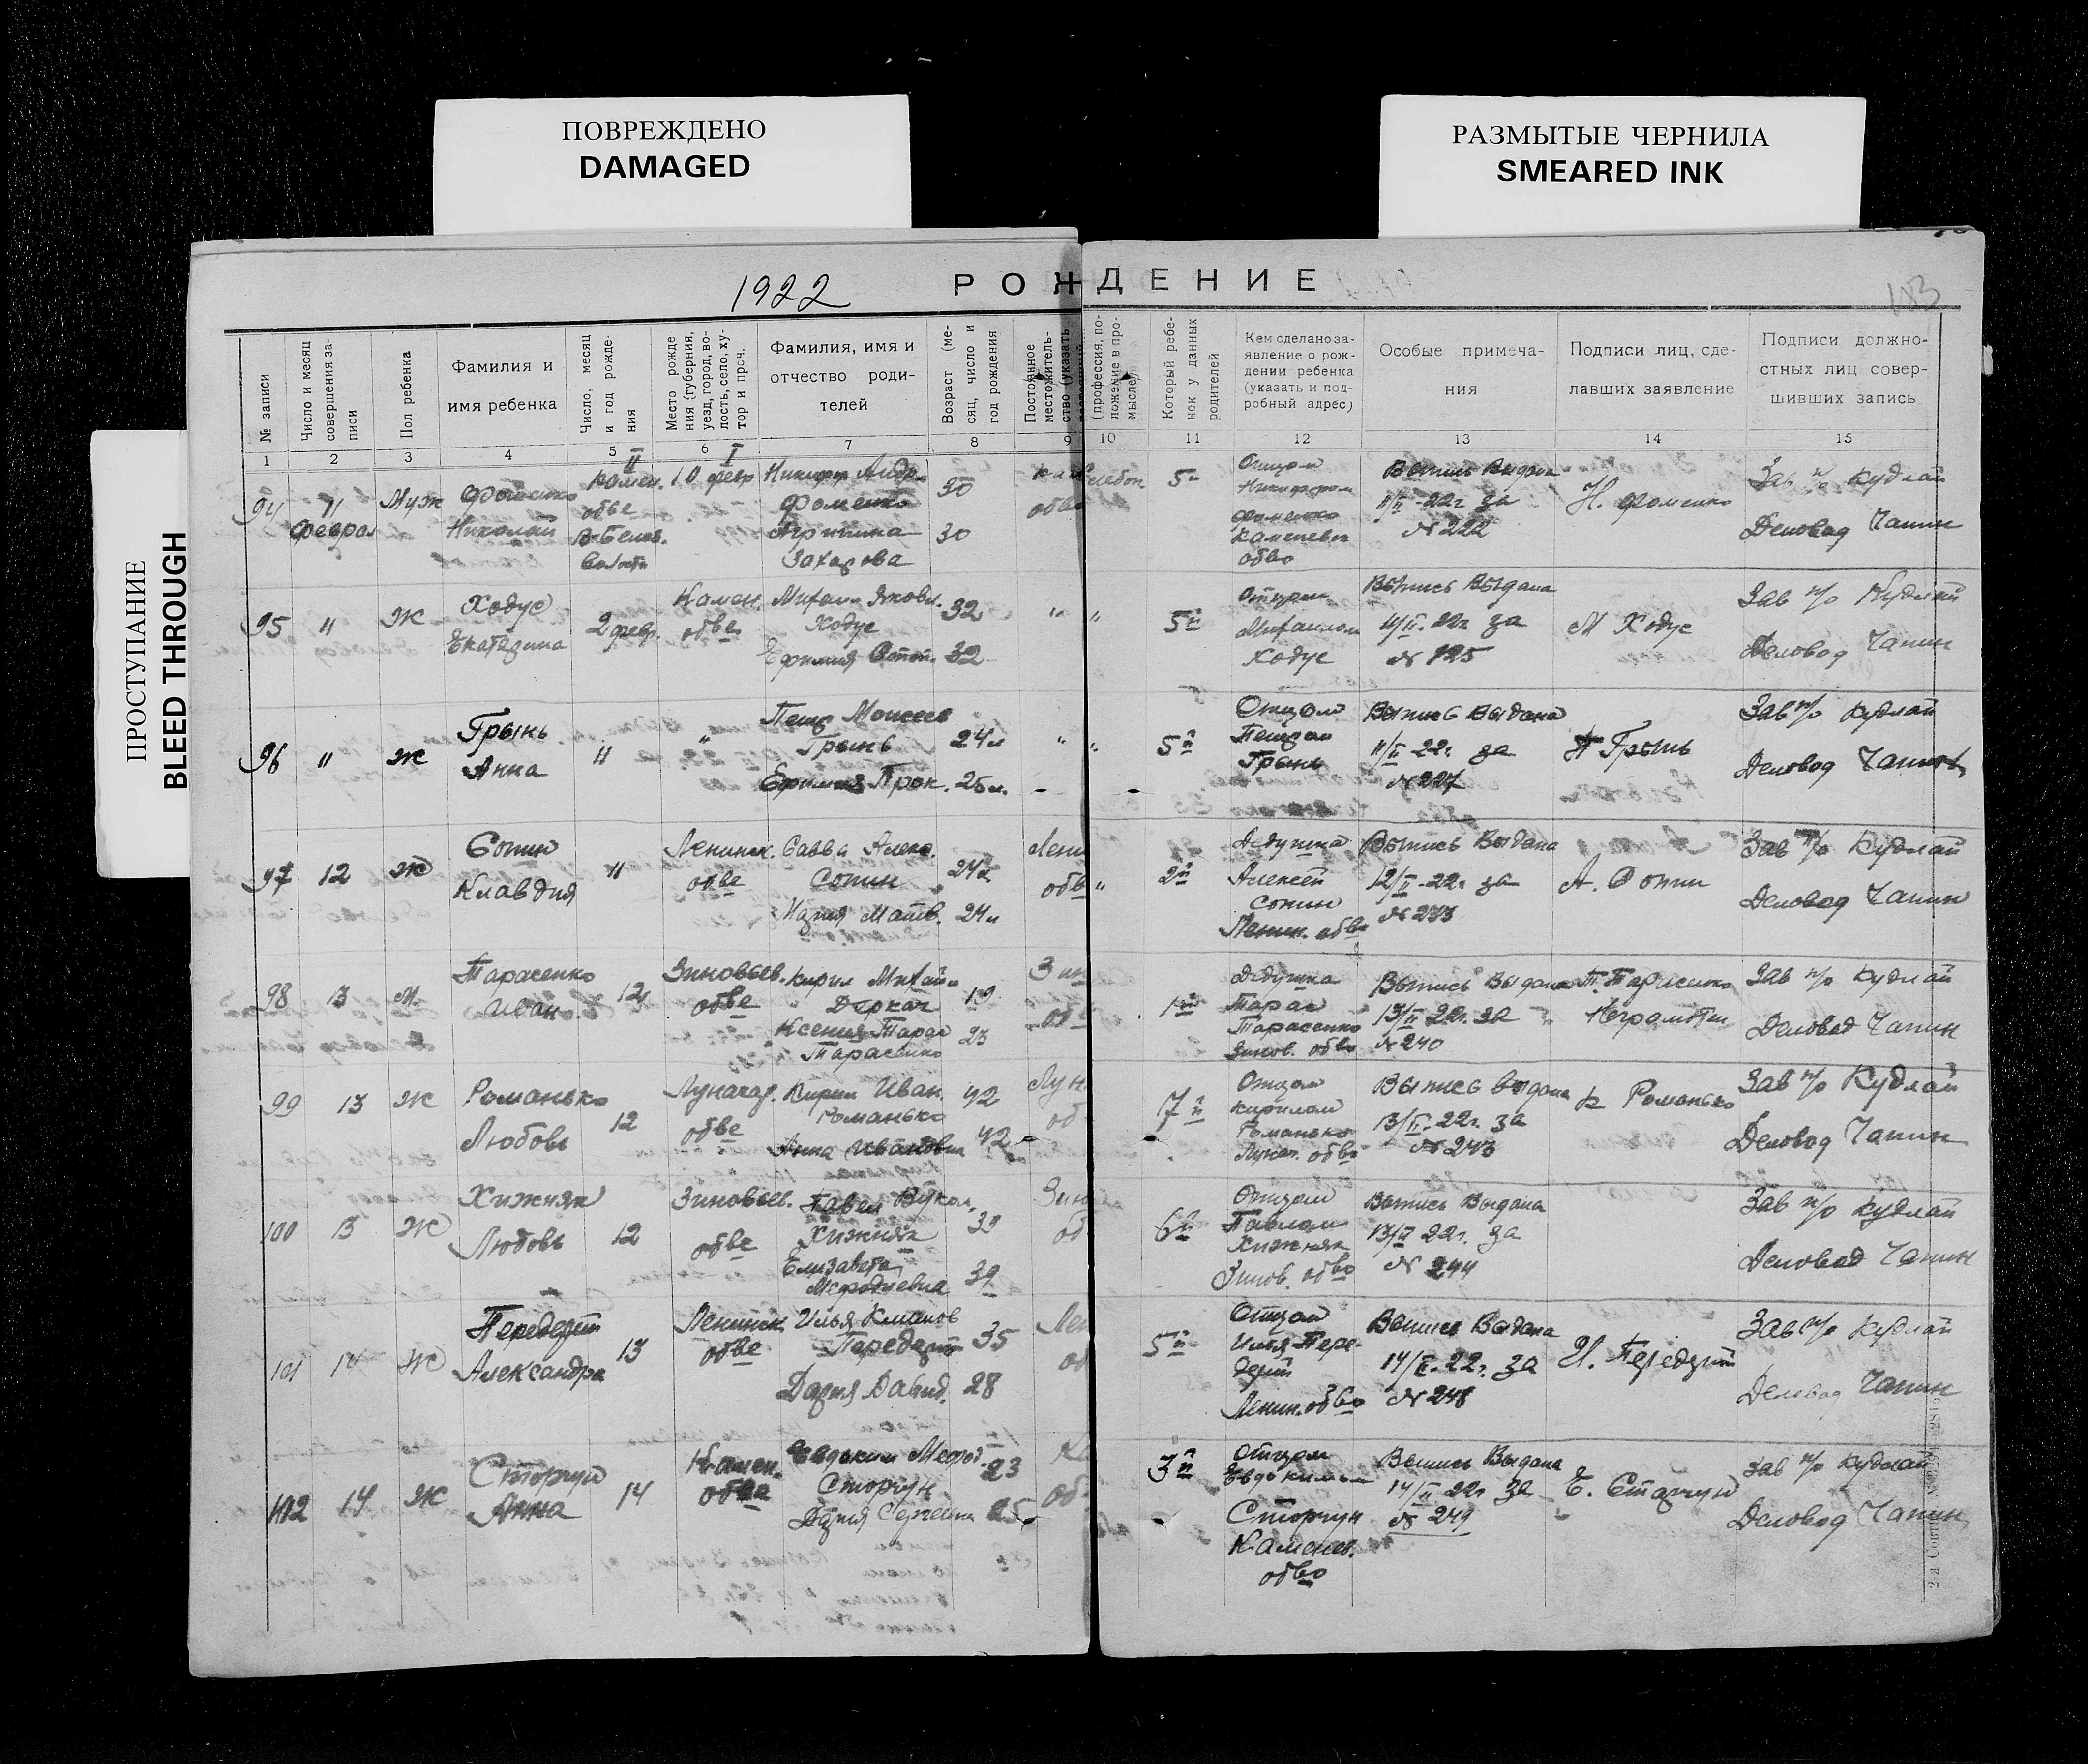 ПОВРЕЖДЕНО
DAMAGED
РАЗМЫТЫЕ ЧЕРНИЛА
SMEARED INK
ПРОСТУПАНИЕ
BLEED THROUGH
1922
РОЖДЕНИЕ
103
№ записи
Число и месяц совершения записи
Пол ребенка
Фамилия и
имя ребенка
Число, месяц и год рождения
Место рождения (губерния, уезд, город, волость, село, хутор и проч.
Фамилия, имя и
отчество роди-
телей
Возраст (месяц, число и год рождения
Постоянное местожительство (указать
(профессия, положение в промысле)
Который ребенок у данных родителей
Кем сделано за-
явление о рож-
дении ребенка
(указать и под-
робный адрес)
Особые примеча-
ния
Подписи лиц, сде-
лавших заявление
Подписи должно-
стных лиц совер-
шивших запись
1 2 3 4 5 6 7 8 9 10 11 12 13 14 15
II I
94 11 Феврал Муж Фоменко Николай
Камен. обве
волости
10 февр
Никифор Андр. Фоменко 30
Захарова 30
5
Отцом Никифором Фоменко Каменев. обво
Выпись Выдана 11/II-22г за № 222
Н. Фоменко
Зав п/о Кудлай
Деловод Чапин
95 " Ж Ходус Екатерина 2 февр. Камен. обве
Михаил Яковл. Ходус 32
32
" " 5й
Отцом Михаилом Ходус
Выпись Выдана 11/II.22г за № 125
М Ходус
Зав п/о Кудлай
Деловод Чапин
96 " Ж Грынь Анна " "
Петр Моисеев Грынь 24л
Ефимия Прок. 25л.
" " 5й
Отцом Петром Грынь
Выпись Выдана 11/II 22г. за № 227
П Грынь
Зав п/о Кудлай
Деловод Чапин
97 12 Ж Сопин Клавдия " Ленинск. обве
Савва Алекс. Сопин 24л
Мария Матв. 24л
Лени обв " 2й
Дедушка Алексей Сопин Ленин. обво
Выпись Выдана 12/II-22г за № 233
А. Сопин
Зав п/о Кудлай
Деловод Чапин
98 13 М. Тарасенко Иван 12 Зиновьев. обве
Кирил Михайл. Деркач 19
Ксения Тарас Тарасенко 23
Зин об 1й
Дедушка Тарас Тарасенко Зинов. обво
Выпись Выдана 13/II 22г. за № 240
Т. Тарасенко
Неграмотен
Зав п/о Кудлай
Деловод Чапин
99 13 Ж Романько Любовь 12 Луначар. обве
Кирил Иван. Романько 42
Анна Ивановна 42
Лун. об 7й
Отцом Кирилом Романько Лунач. обво
Выпись Выдана 13/II.22г. за № 243
К Романько
Зав п/о Кудлай
Деловод Чапин
100 13 Ж Хижняк Любовь 12 Зиновьев. обве
Павел Вукол. Хижняк 39
Елизавета Мефодиевна 39
Зин об 6й
Отцом Павлом Хижняк Зинов. обво
Выпись Выдана 13/II 22г. за № 244
Зав п/о Кудлай
Деловод Чапин
101 14 Ж Передерий Александра 13 Ленинск обве
Илья Климов Передерий 35
Дария Давид. 28
Лен об 5й
Отцом Илья Передерий Ленин. обво
Выпись Выдана 14/II.22г. за № 248
И. Передерий
Зав п/о Кудлай
Деловод Чапин
102 14 Ж Сторчун Анна 14 Камен. обве
Евдоким Мефод. Сторчун 23
Дария Сергеевна 25
Ка об 3й
Отцом Евдокимом Сторчун Каменев. обво
Выпись Выдана 14/II 22г за № 249
Е. Сторчун
Зав п/о Кудлай
Деловод Чапин